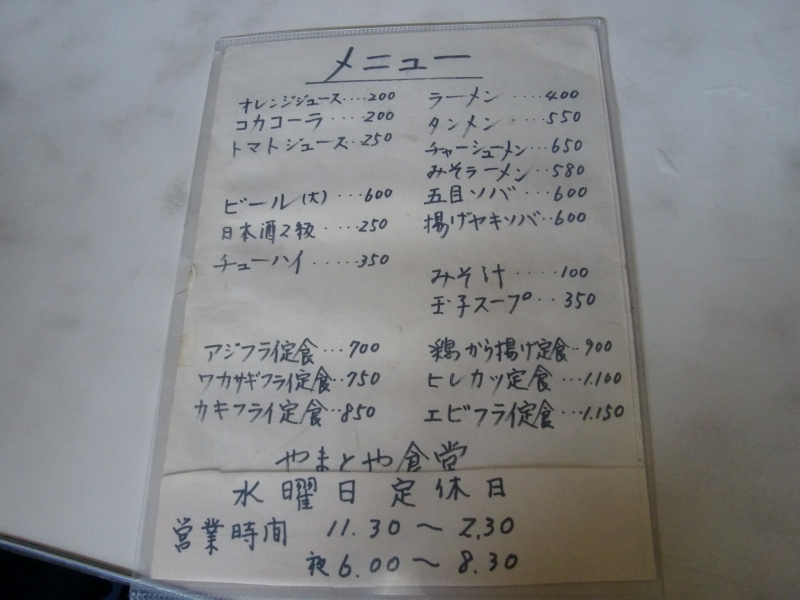 メニュー
オレンジジュース....200
コカコーラ ....200
トマトジュース..250
ビール(大)...600
日本酒2級 ....250
チューハイ .....350
アジフライ定食...700
ワカサギフライ定食..750
カキフライ定食...850
ラーメン ....400
タンメン ....550
チャーシューメン...650
みそラーメン..580
五目ソバ...600
揚げヤキソバ..600
みそ汁.....100
玉子スープ..350
鶏から揚げ定食..900
ヒレカツ定食....1.100
エビフライ定食...1.150
やまとや食堂
水曜日定休日
営業時間 11.30〜2.30
夜6.00〜8.30